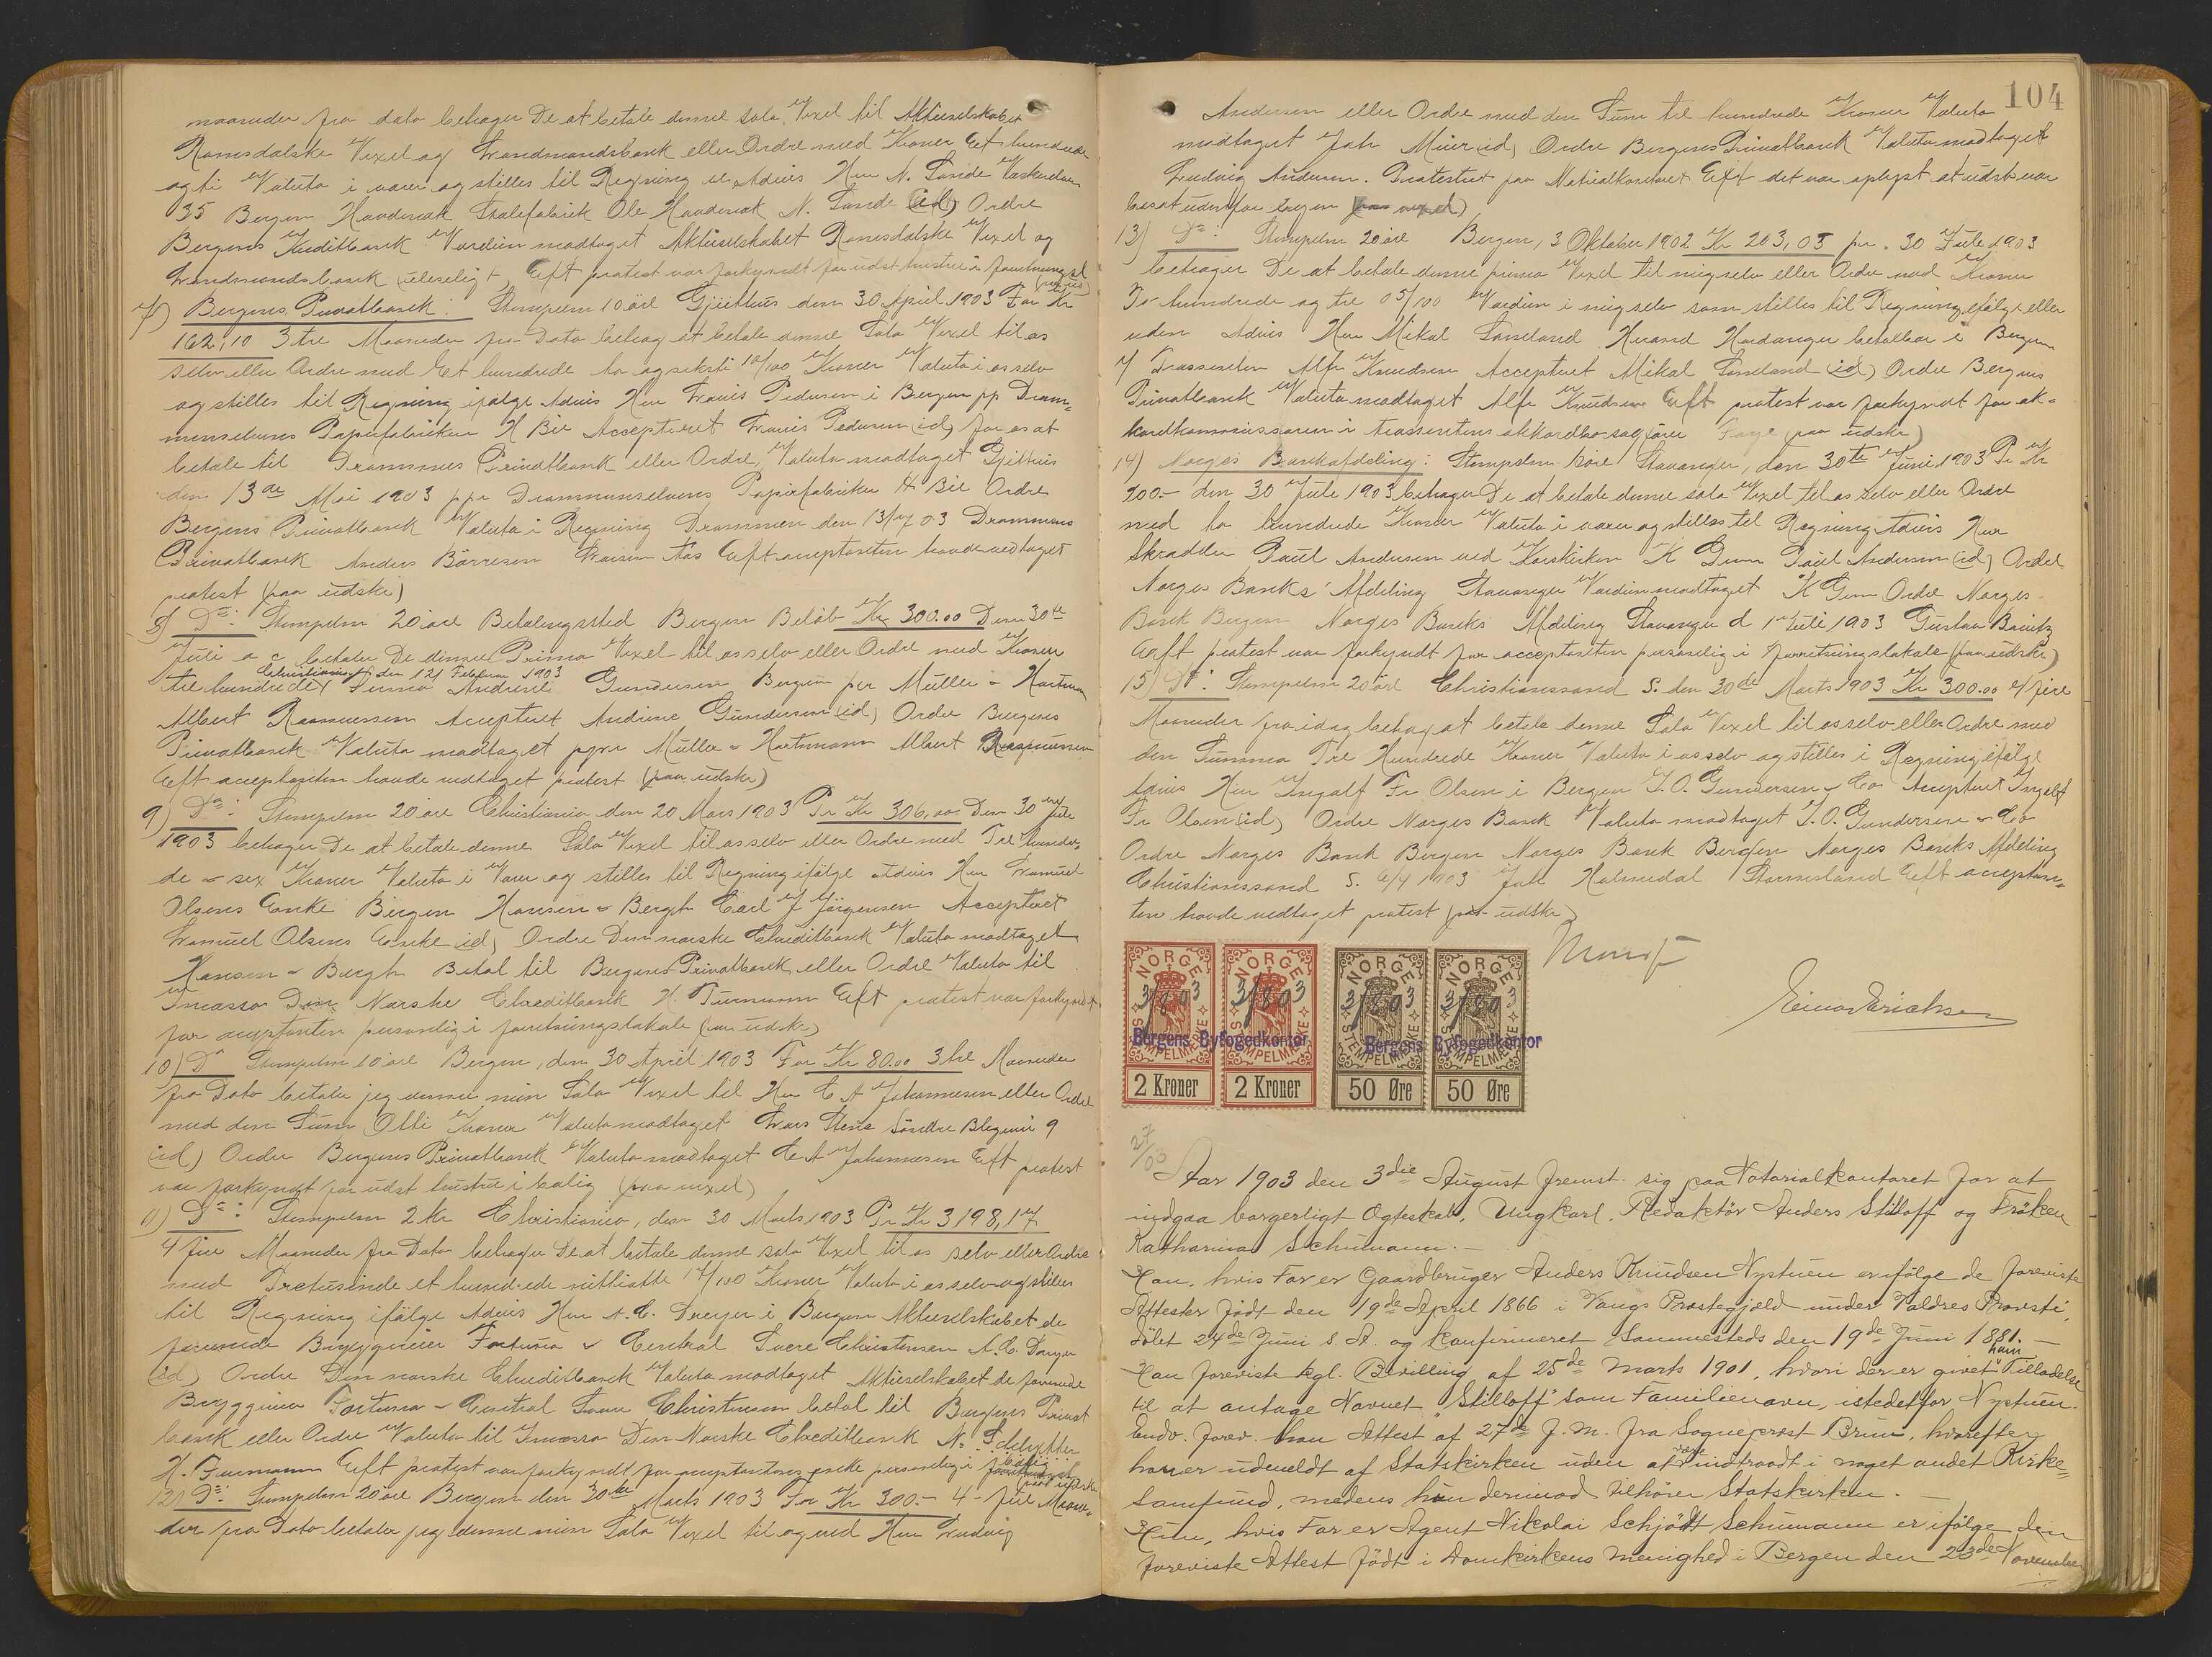 maaneder fra dato behager De at betale denne sola Vexel til Aktieselskabet
Romsdalske Vexel og Landmandsbank eller Ordre med Kroner Et hundrede
og ti Valuta i varer og stilles til Regning Advis Herr N. Sande
35 Bergen Havdevak Skalefabrik Ole Havdevak N. Sande (id) Ordre
Bergens Kreditbank Værdien modtaget Aktieselskabet Romsdalske Vexel og
Landmandsbank ulæseligt, Eft protest var forkyndt for udst hustru i
7) Bergens Privatbank: Stempelm 10 öre Gjethus den 30 April 1903 For Kr
162,10 3 tre Maaneder fra Dato behag at betale denne Sola Vexel til os
selv eller Ordre med Et hundrede to og seksti 10/100 Kroner Valuta i os selv
og stilles til Regning ifølge Advis Herr Pedersen i Bergen pp Dram-
menselvens Papirfabriker H Bie Accepteret Pedersen (id) for os at
betale til Drammens Privatbank eller Ordre, Valuta modtaget Gjethus
den 13de Mai 1903 ppr Drammenselvens Papirfabriker H Bie Ordre
Bergens Privatbank Valuta i Regning Drammen den 13/7 03 Drammens
Privatbank Anders Börresen Eft acceptanten havde vedtaget
protest (paa udskr)
8) Do: Stempelm 20 öre Betalingssted Bergen Beløb Kr 300.00 Den 30te
Juli a c betaler De denne Prima Vexel til os selv eller Ordre med Kroner
Christiania den 121 Februar 1903
tre hundrede Andrine Gundersen Bergen per Müller & Hartmann
Albert Rasmussen Accepteret Andrine Gundersen (id) Ordre Bergens
Privatbank Valuta modtaget ppr Müller & Hartmann Albert Rasmussen
Eft acceptanten havde vedtaget protest (paa udskr)
9) Do: Stempelm 20 öre Christiania den 20 Mars 1903 Pr Kr 306,00 Den 30 Juli
1903 behager De at betale denne Sola Vexel til os selv eller Ordre med Tre hundre-
de & sex Kroner Valuta i Varer og stilles til Regning ifølge advis Herr Samuel
Olsens Enke Bergen Hansen & Bergh Carl J Jørgensen Accepteret
Samuel Olsens Enke (id) Ordre Den norske Creditbank Valuta modtaget
Hansen & Bergh Betal til Bergens Privatbank eller Ordre Valuta til
Incasso Den Norske Creditbank H. Furmann Eft protest var forkyndt
for acceptanten personlig i forretningslokale (paa udskr)
10) Do Stempelm 10 öre Bergen, den 30 April 1903 For Kr 80.00 3 tre Maaneder
fra Dato betaler jeg denne min Sola Vexel til Herr C A Johannesen eller Ordre
med den Sum Otti Kroner Valuta modtaget Lars Stene Søndre Blegevei 9
(id) Ordre Bergens Privatbank Valuta modtaget C A Johannesen Eft protest
var forkyndt for udst hustru i bolig (paa vexel)
11) Do: Stempelm 2 Kr Christiania, den 30 Marts 1903 Pr Kr 3198,17
4 fire Maaneder fra Dato behager De at betale denne sola Vexel til os selv eller Ordre
med Tretusinde et hundrede nittiotte 17/100 Kroner Valuta i os selv og stilles
til Regning ifølge Advis Herr A. C. Dreyer i Bergen Aktieselskabet de
forenede Bryggerier Fortuna & Central Svere Christensen A. C. Dreyer
(id) Ordre Den norske Creditbank Valuta modtaget Aktieselskabet de forenede
Bryggerier Fortuna & Central Svere Christensen betal til Bergens Privat
bank eller Ordre Valuta til Incasso Den Norske Creditbank N. Schlytter
H. Furmann Eft protest var forkyndt for acceptantens enke personlig i bolig
12) Do: Stempelm 20 öre Bergen den 30te Marts 1903 For Kr 300.- 4 - fire Maane-
der fra Dato betaler jeg denne min Sola Vexel til og ved Herr Ludvig
104
Andersen eller Ordre med den Sum tre hundrede Kroner Valuta
modtaget Joh Müer (id) Ordre Bergens Privatbank Valuta modtaget
Ludvig Andersen. Protesteret paa Notarialkontoret Eft det var oplyst at udst var
bosat udenfor byen (paa vexel)
13) Do: Stempelm 20 öre Bergen, 3 Oktober 1902 Kr 203,05 pr. 30 Juli 1903
behager De at betale denne prima Vexel til mig selv eller Ordre med Kroner
To hundrede og tre 05/100 Værdien i mig selv som stilles til Regning ifølge eller
uden Advis Herr Mikal Sandand Herand Hardanger betalbar i Bergen
Trassenten Alfr Knudsen Accepteret Mikal Sandand (id) Ordre Bergens
Privatbank Valuta modtaget Alfr Knudsen Eft protest var forkyndt for ak-
kordkommissæren i trassentens akkordbo sagfører Faye (paa udskr)
14) Norges Bankafdeling: Stempelm öre Stavanger, den 30te Juni 1903 Pr Kr
200.- den 30 Juli 1903 behager De at betale denne sola Vexel til os selv eller Ordre
med to hundrede Kroner Valuta i varer og stilles til Regning Advis Herr
Skrædder Paul Andersen ved Korskirken K Paul Andersen (id) Ordre
Norges Banks Afdeling Stavanger Værdien modtaget K Ordre Norges
Bank Bergen Norges Banks Afdeling Stavanger d 1 Juli 1903 Gustav
Eeft protest var forkyndt for acceptanten personlig i forretningslokale (paa udskr)
15) Do: Stempelm 20 öre Christianssand S. den 30de Marts 1903 Kr 300.00 4/fire
Maaneder fra idag behag at betale denne Sola Vexel til os selv eller Ordre med
den Summa Tre Hundrede Kroner Valuta i os selv og stilles i Regning ifølge
advis Herr Ingolf Fr Olsen i Bergen J. O. Gundersen & Co Accepteret Ingolf
Fr Olsen (id) Ordre Norges Bank Valuta modtaget J. O. Gundersen & Co
Ordre Norges Bank Bergen Norges Bank Bergen Norges Banks Afdeling
Christianssand S. 6/4 1903 Joh Holmedal Stornesland Eft acceptan-
ten havde vedtaget protest (paa udskr)
NORGE NORGE NORGE NORGE
3/8 03 3/8 03 3/8 03 3/8 03
Bergens Byfogedkontor Bergens Byfogedkontor
STEMPELMÆRKE STEMPELMÆRKE STEMPELMÆRKE STEMPELMÆRKE
2 Kroner 2 Kroner 50 Øre 50 Øre
Einar Erichsen
27/03
Aar 1903 den 3die August fremst. sig paa Notarialkontoret for at
indgaa borgerligt Ægteskab, Ungkarl, Redaktör Anders Stilloff og Fröken
Katharina Schumann. -
Han, hvis Far er Gaardbruger Anders Knudsen Nystuen er ifölge de foreviste
Attester født den 19de April 1866 i Vangs Præstegjæld under Valdres Provsti,
döbt 24de Juni s. A. og konfirmeret sammesteds den 19de Juni 1881. -
Han foreviste kgl. Bevilling af 25de Marts 1901, hvori der er givet ham Tilladelse
til at antage Navnet "Stilloff" som Familienavn, istedetfor Nystuen.
Endv. forev. han Attest af 27de f. M. fra Sogneprest Brun, hvorefter
han er udmeldt af Statskirken uden at være indtraadt i noget andet Kirke-
samfund, medens hun derimod tilhører Statskirken. -
Hun, hvis Far er Agent Nikolai Schjødt Schumann er ifölge den
foreviste Attest födt i Domkirkens Menighed i Bergen den 23de November